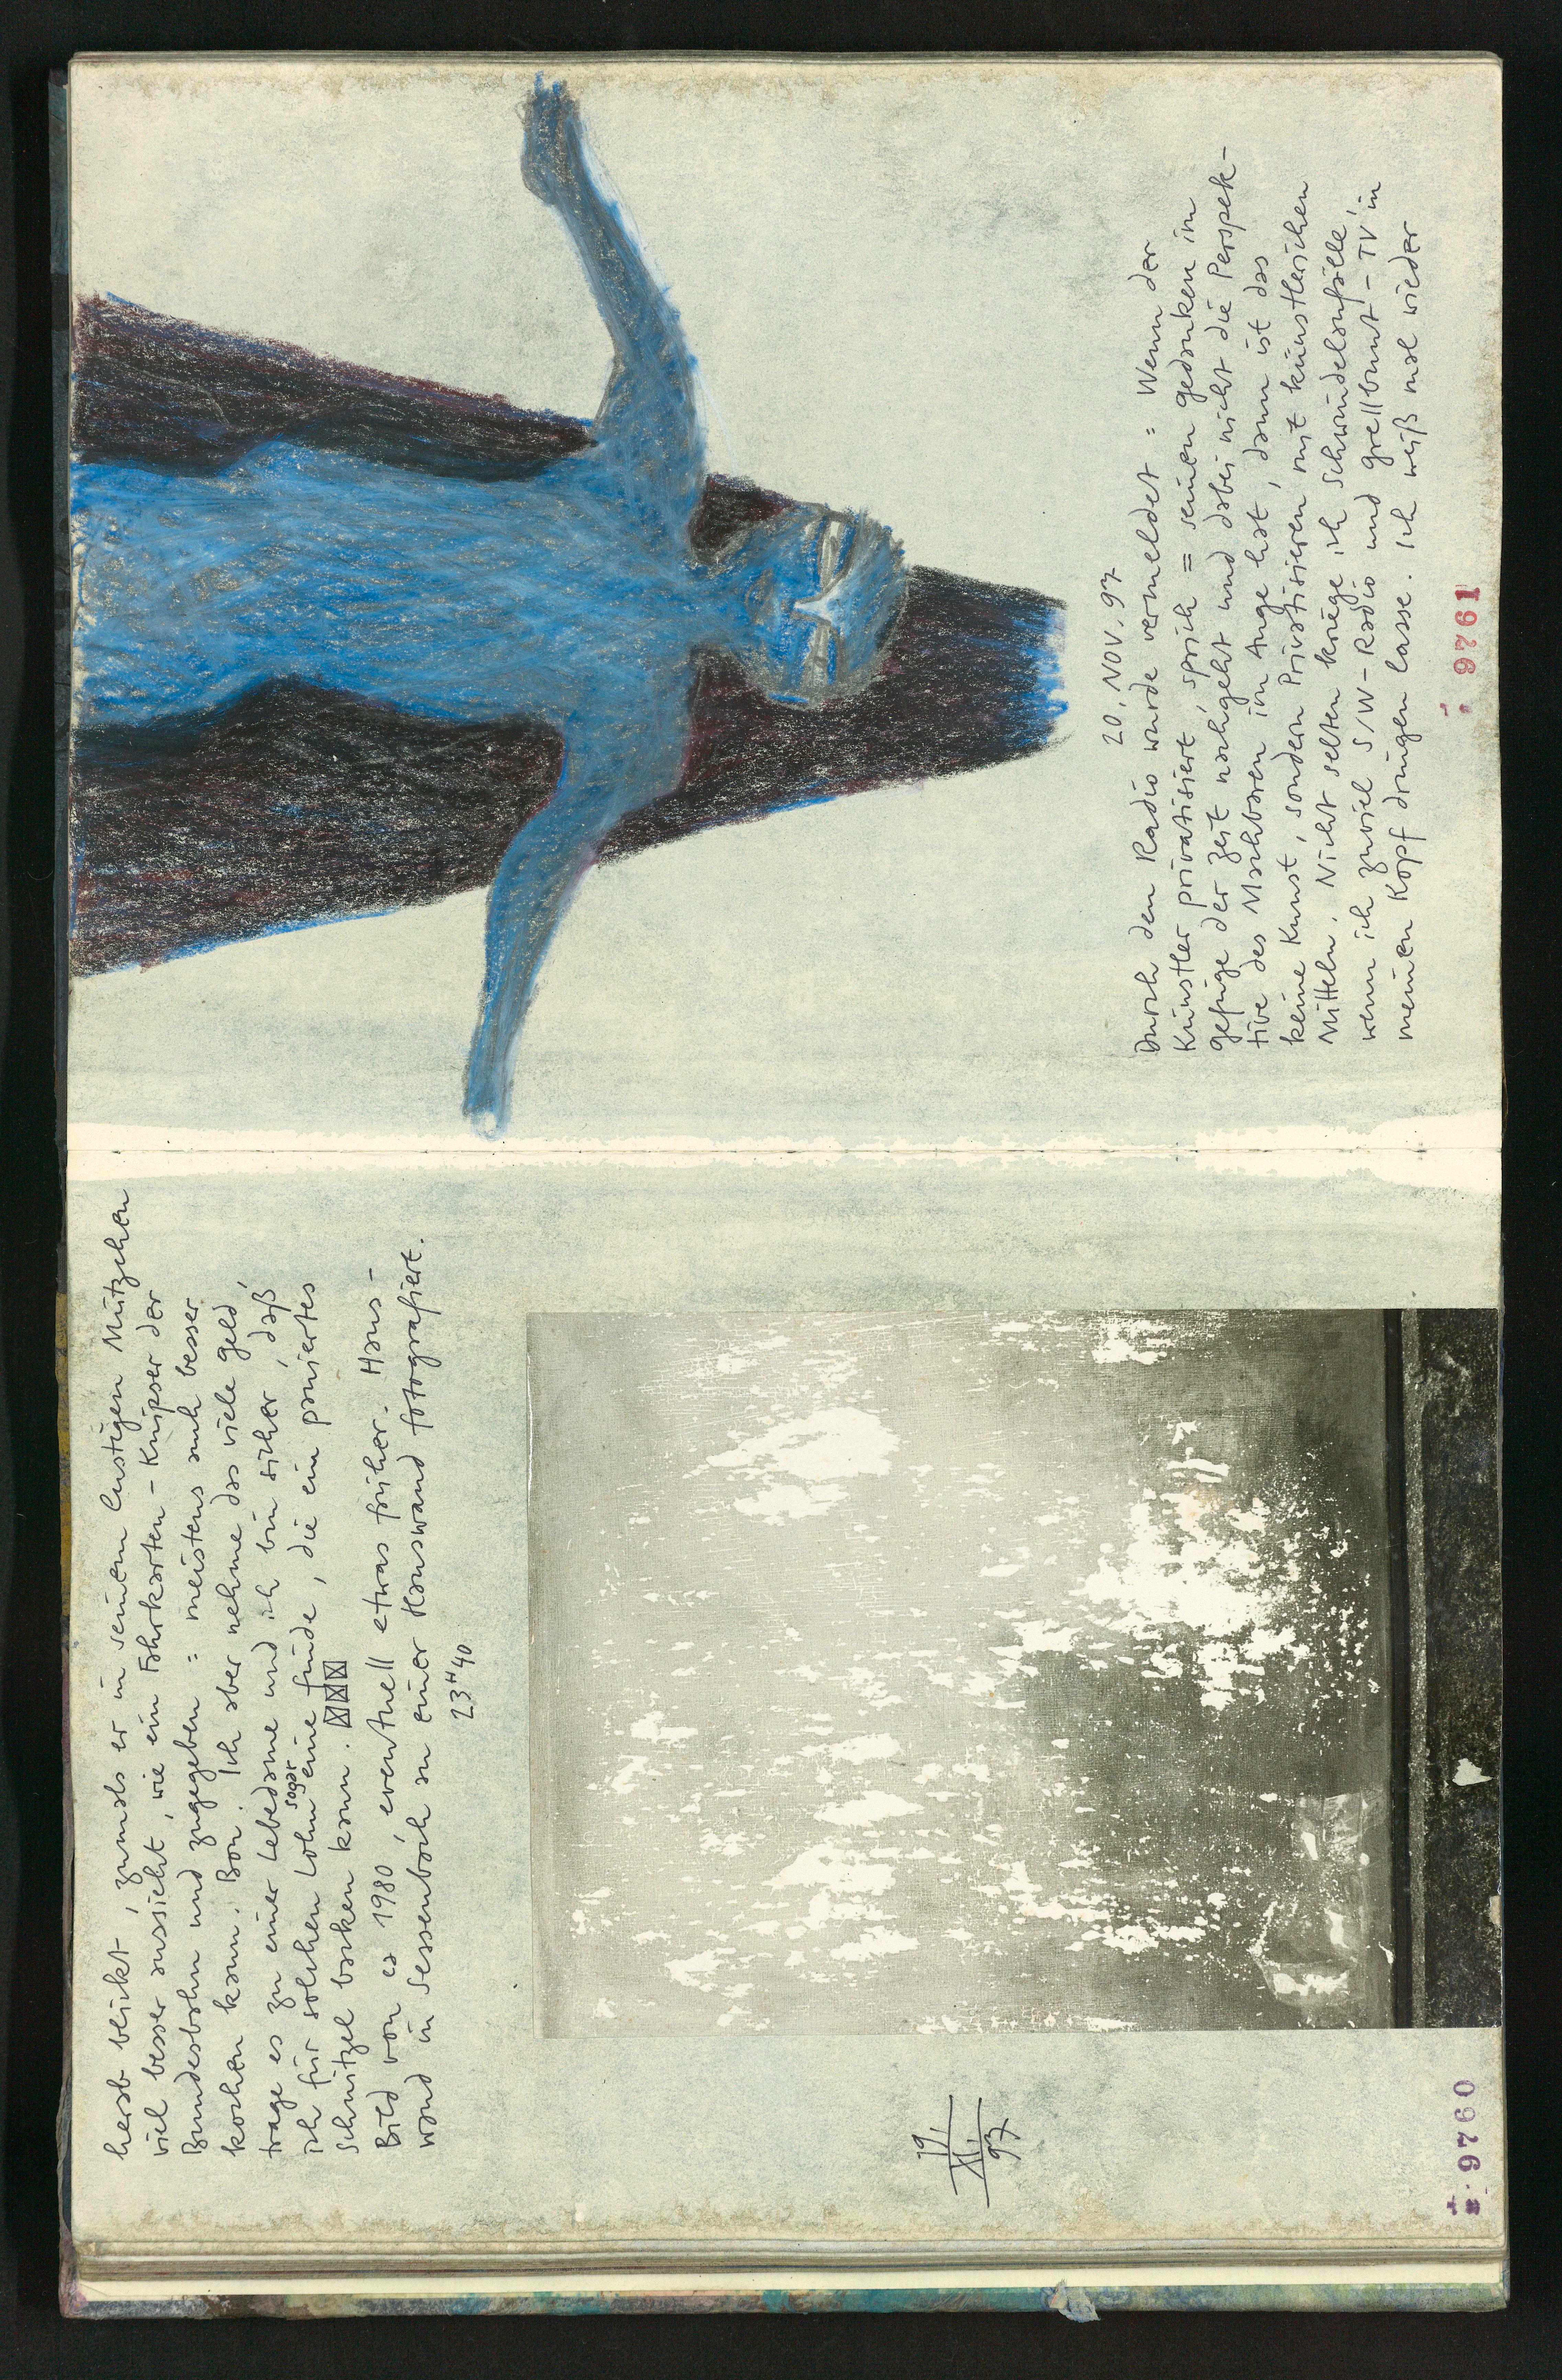 herab blickt, zumals er in seinem lustigen Mützchen
viel besser aussieht, wie ein Fahrkarten-Knipser der
Bundesbahn und zugegeben : meistens auch besser
kochen kann. Bon. Ich aber nehme das viele Geld,
trage es zu einer Lebedame und ich bin sicher, daß
ich für solchen Lohn sogar eine finde, die ein paniertes
Schnitzel backen kann.
Bild von ca 1980, eventuell etwas früher. Haus-
wand in Sessenbach an einer Hauswand fotografiert.
23H40
19.
XI.
97
9760
20. NOV. 97
Durch den Radio wurde vermeldet : Wenn der
Künstler privatisiert, sprich = seinen gedanken im
gefüge der Zeit nachgeht und dabei nicht die Perspek-
tive des Machbaren im Auge hat, dann ist das
keine Kunst, sondern Privatisieren mit künstlerischen
Mitteln. Nicht selten kriege ich Schwindelanfälle,
wenn ich zuviel S/W-Radio und grellbunt-TV in
meinen Kopf dringen lasse. Ich weiß mal wieder
9761